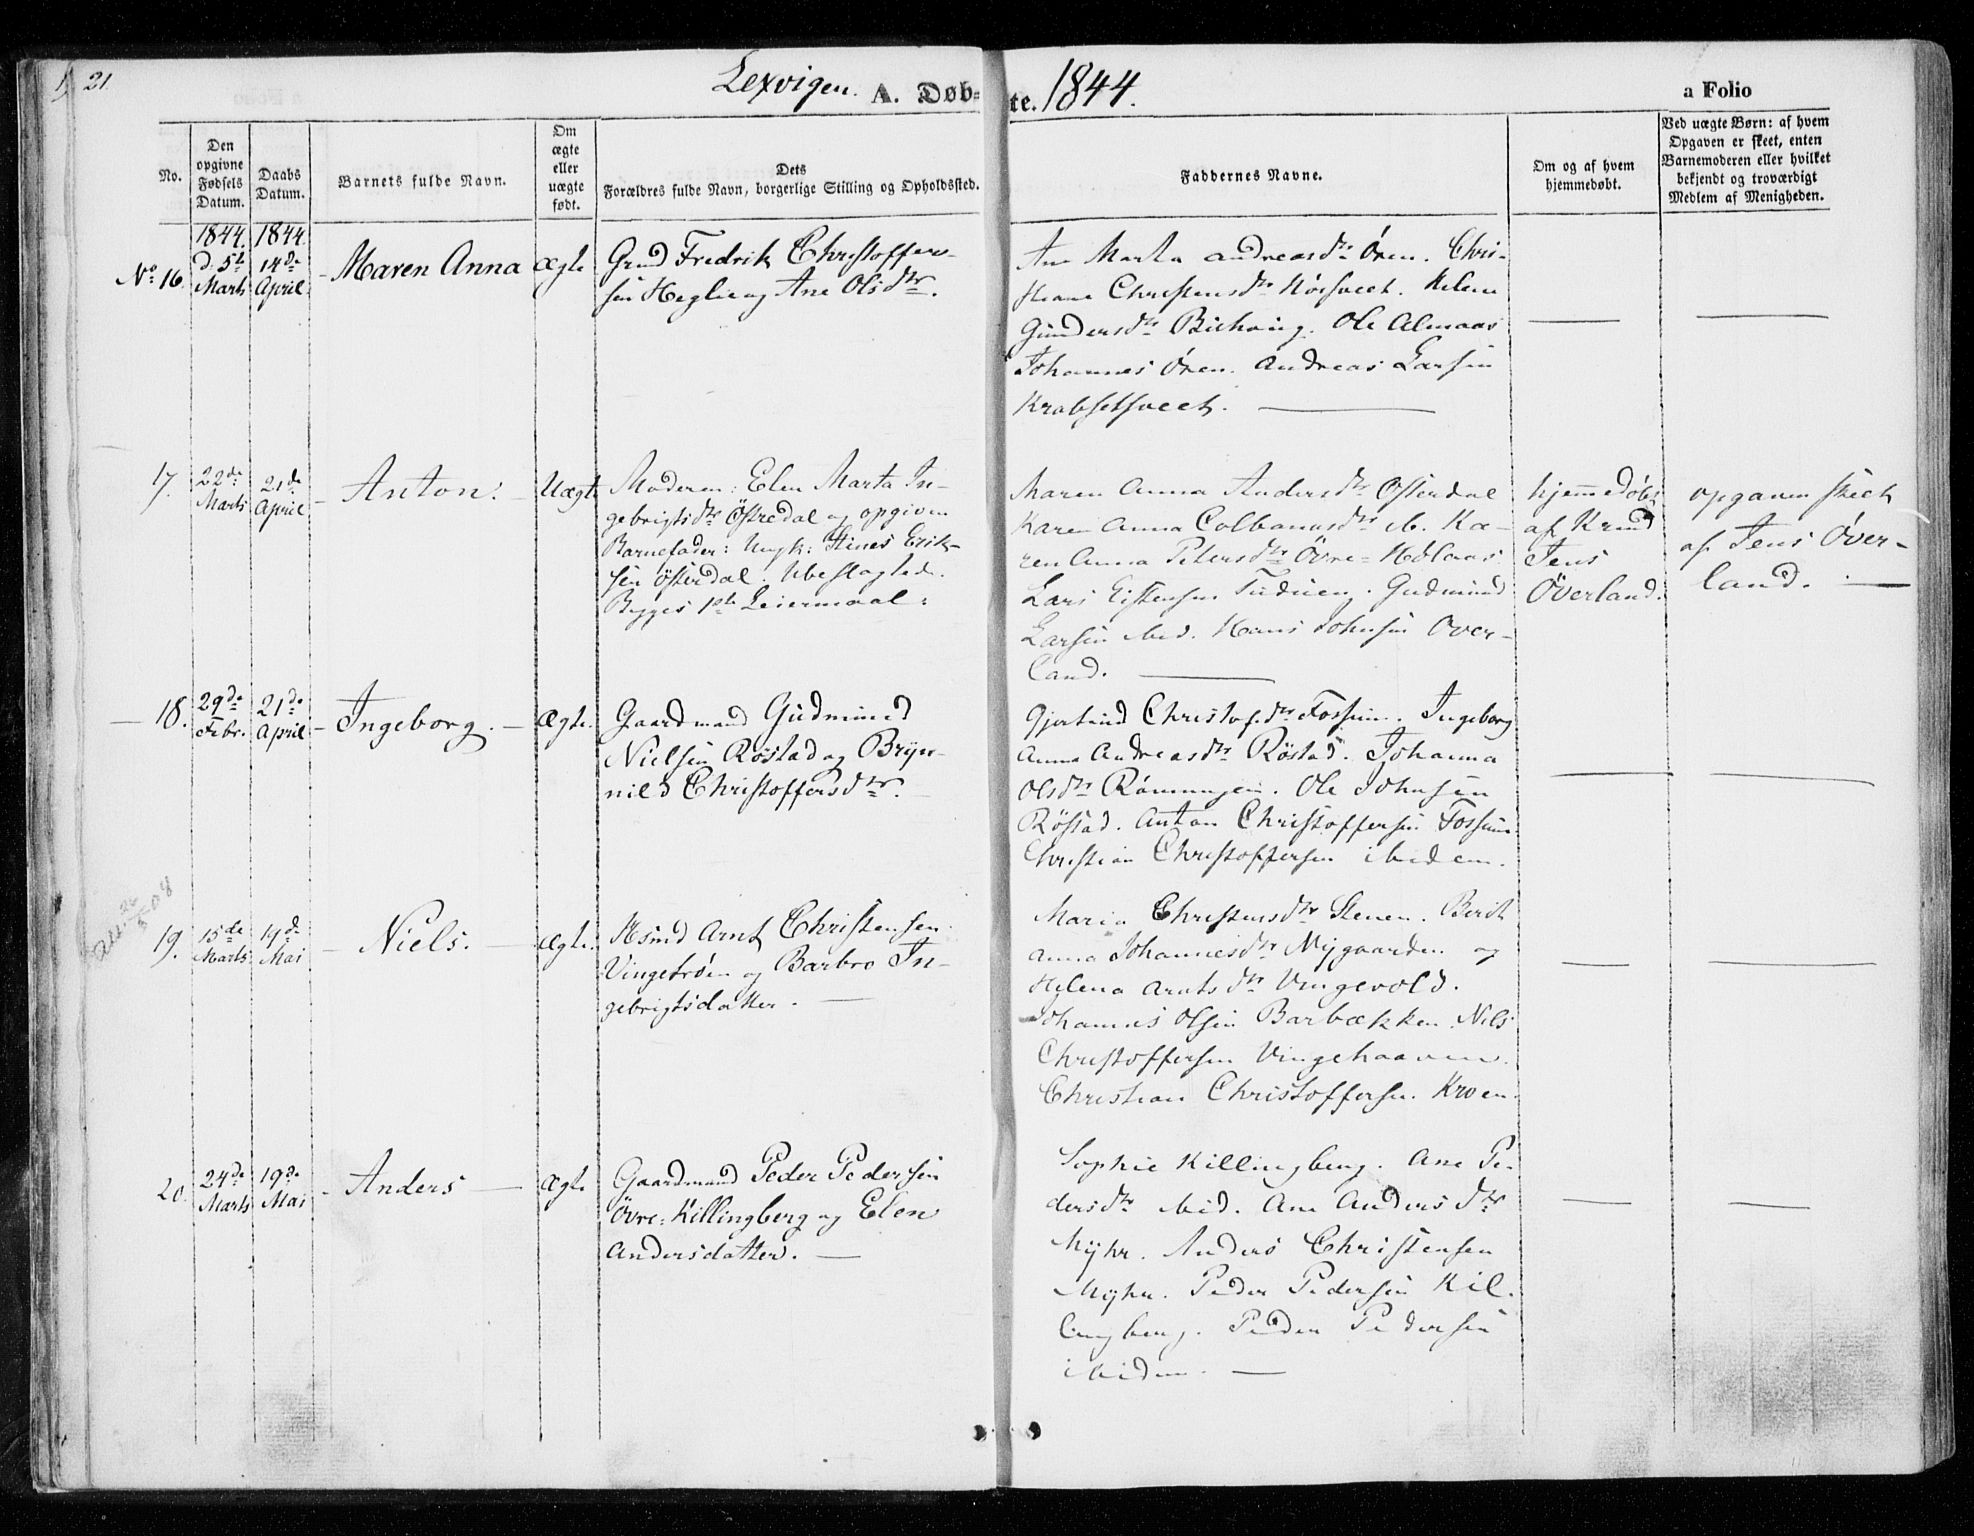 21.
Lexvigen. A. Døb-
te. 1844.
a Folio
No.
Den
opgivne
Fødsels
Datum.
Daabs
Datum.
Barnets fulde Navn.
Om
ægte
eller
uægte
født.
Dets
Forældres fulde Navn, borgerlige Stilling og Opholdssted.
Faddernes Navne.
Om og af hvem
hjemmedøbt.
Ved uægte Børn: af hvem
Opgaven er skeet, enten
Barnemoderen eller hvilket
bekjendt og troværdigt
Medlem af Menigheden.
No 16.
1844.
d. 5te
Marts
1844.
14de
April
Maren Anna
Ægte
Grmd Fredrik Christoffer-
sen Heglie og Ane Olsdtr.
Ane Marta Andreasdtr Ören. Chri-
stiane Christensdtr
Gundersdtr Ole Almaas
Johannes Ören. Andreas Larsen
Krabsetsveet.
17.
22de
Marts
21de
April
Anton.
Uægte
Moderen: Elen Marta In-
gebrigtsdtr Östredal og opgiven
Barnefader: Ungk: Stines Erik-
sen Österdal. Ubeslægtede.
Begges 1ste Leiermaal.
Maren Anna Andersdtr Österdal
Karen Anna Colbanusdtr ib. Ka-
ren Anna Petersdtr Övre-Holaas.
Lars Eistensen Gudmund
Larsen ibid. Hans Johnsen Över-
land.
hjemmedøbt
af Krmd
Jens
Överland.
opgaven skeet
af Jens Över-
land.
18.
29de
Febr.
21de
April
Ingeborg.
Ægte.
Gaardmand Gudmund
Nielsen Röstad og Bryn-
nild Christoffersdtr.
Gjertrud Christofsdtr Fossum. Ingeborg
Anna Andreasdtr Röstad. Johanna
Olsdtr Römmingen. Ole Johnsen
Röstad. Anton Christoffersen Fossum.
Christian Christoffersen ibidem.
19.
15de
Marts
19de
Mai
Niels.
Ægte.
Husmd Arnt Christensen
Vingetrøen og Barbro In-
gebrigtsdatter.
Maria Christensdtr Stenen. Berit
Anna Johannesdtr Nygaarden og
Helena Arntsdtr Vingevold.
Johannes Olsen Barbækken. Nils
Christoffersen Vingehaaven.
Christian Christoffersen. Kroen.
20.
24de
Marts
19de
Mai
Anders
Ægte
Gaardmand Peder Pedersen
Övre-Killingberg og Elen
Andersdatter.
Sophie Killingberg. Ane Pe-
dersdtr ibid. Ane Andersdtr
Myhr. Anders Christensen
Myhr. Peder Pedersen Kil-
lingberg. Peder Pedersen
ibidem.